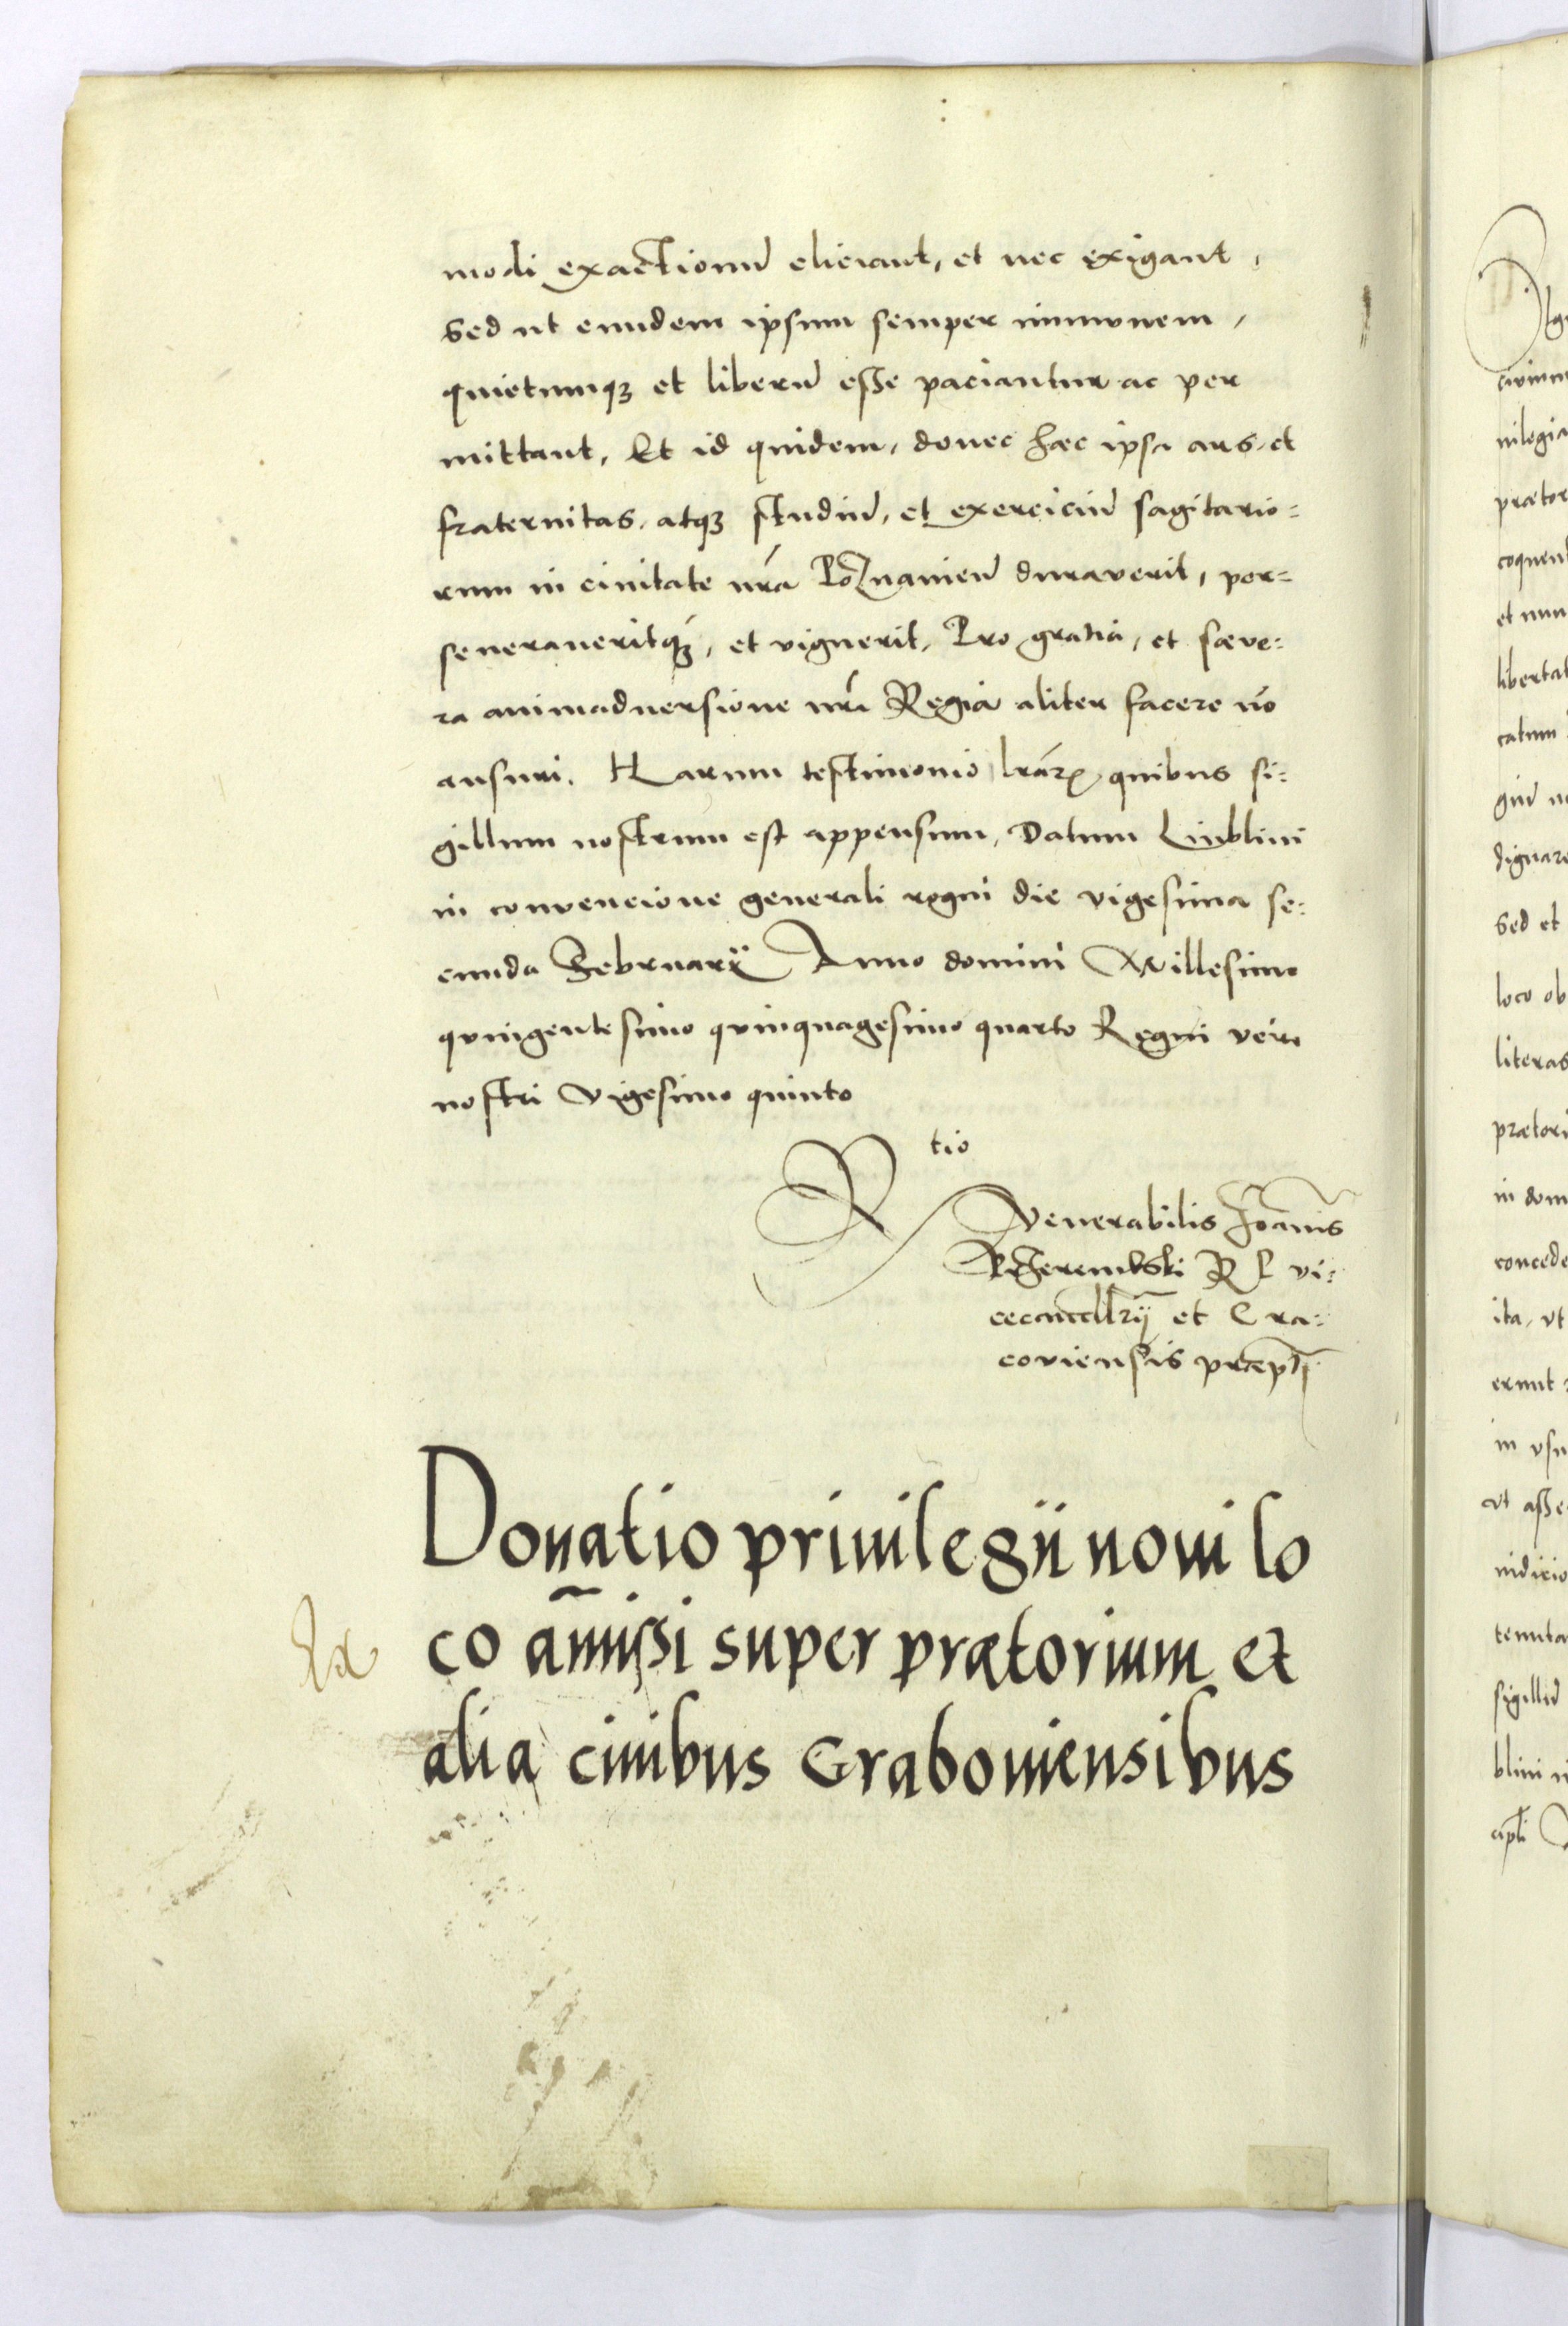 modi exactionū eliciant, et nec exigant,
sed ut eundem ipsum semper immunem,
quietumqꝫ et liberū esse paciantur ac per
mittant, Et id quidem, donec hæc ipsa ars, et
fraternitas, atqꝫ studiū, et exerciciū sagitario=
rum in ciuitate nr̃a Poznanien̄ duraverit, per=
seueraueritqꝫ, et viguerit, Pro gratia, et sæve=
ra animaduersione nr̃i Regia aliter facere nō
ansuri. Harum testimonio lrãrꝫ quibus si=
gillum nostrum est appensum, Datum Liublini
in convencione generali regni die vigesima se=
cunda Februarii Anno domini Millesimo
quingentesimo quinquagesimo quarto Regni vero
nostri vigesimo quinto
R tio
Venerabilis Joannis
Przerembski R P vi=
cecancellrij et Cra=
coviensis præpti
Donatio priuilegii noui lo
co am̄issi super prætorium et
alia ciuibus Grabouiensibus
prætor
coquen
libertat
catum
dignare
sed et
loco ob
literas
prætori
in dom
concede
ita, vt
erunt
in vsu
vt asse
iudicio
tenuta
sigillū
blini
apli